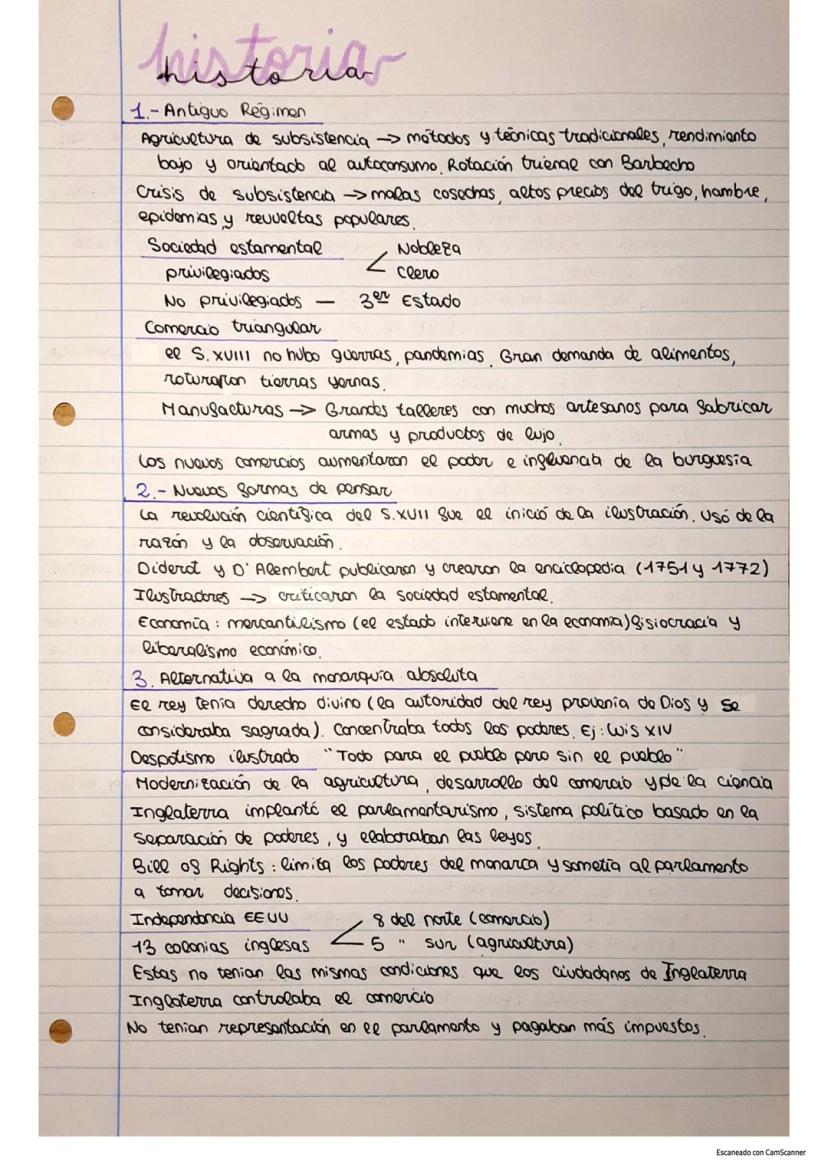 historia
historia
1.- Antiguo Régimen
Agricultura de subsistencia -> métodos y técnicas tradicionales, rendimiento
bajo y orientado al autoconsumo. Rotación trienal con Barbecho
Crisis de subsistencia -> malas cosechas, altos precios del trigo, hambre,
epidemias y revueltas populares.
Sociedad estamental < Nobleza
privilegiados Clero
No privilegiados — 3er Estado
Comercio triangular
el S. XVIII no hubo guerras, pandemias. Gran demanda de alimentos,
roturaron tierras yermas.
Manufacturas -> Grandes talleres con muchos artesanos para fabricar
armas y productos de lujo.
Los nuevos comercios aumentaron el poder e influencia de la burguesía
2.- Nuevas formas de pensar
La revolución científica del S. XVII fue el inició de la ilustración. Usó de la
razón y la observación.
Diderot y D'Alembert publicaron y crearon la enciclopedia (1751 y 1772)
Ilustradores -> criticaron la sociedad estamental.
Economía: mercantilismo (el estado interviene en la economía) fisiocracia y
liberalismo económico.
3. Alternativa a la monarquía absoluta
El rey tenía derecho divino (la autoridad del rey provenía de Dios y se
consideraba sagrada). Concentraba todos los poderes. Ej: Luis XIV
Despotismo ilustrado "Todo para el pueblo pero sin el pueblo"
Modernización de la agricultura, desarrollo del comercio y de la ciencia
Inglaterra implanté el parlamentarismo, sistema político basado en la
separación de poderes, y elaboraban las leyes.
Bill of Rights: limita los poderes del monarca y sometía al parlamento
a tomar decisiones.
Independencia EEUU < 8 del norte (comercio)
13 colonias inglesas 5 " sur (agricultura)
Estas no tenian las mismas condiciones que los ciudadanos de Inglaterra
Inglaterra controlaba el comercio
No tenian representación en el parlamento y pagaban más impuestos.
Escaneado con CamScanner